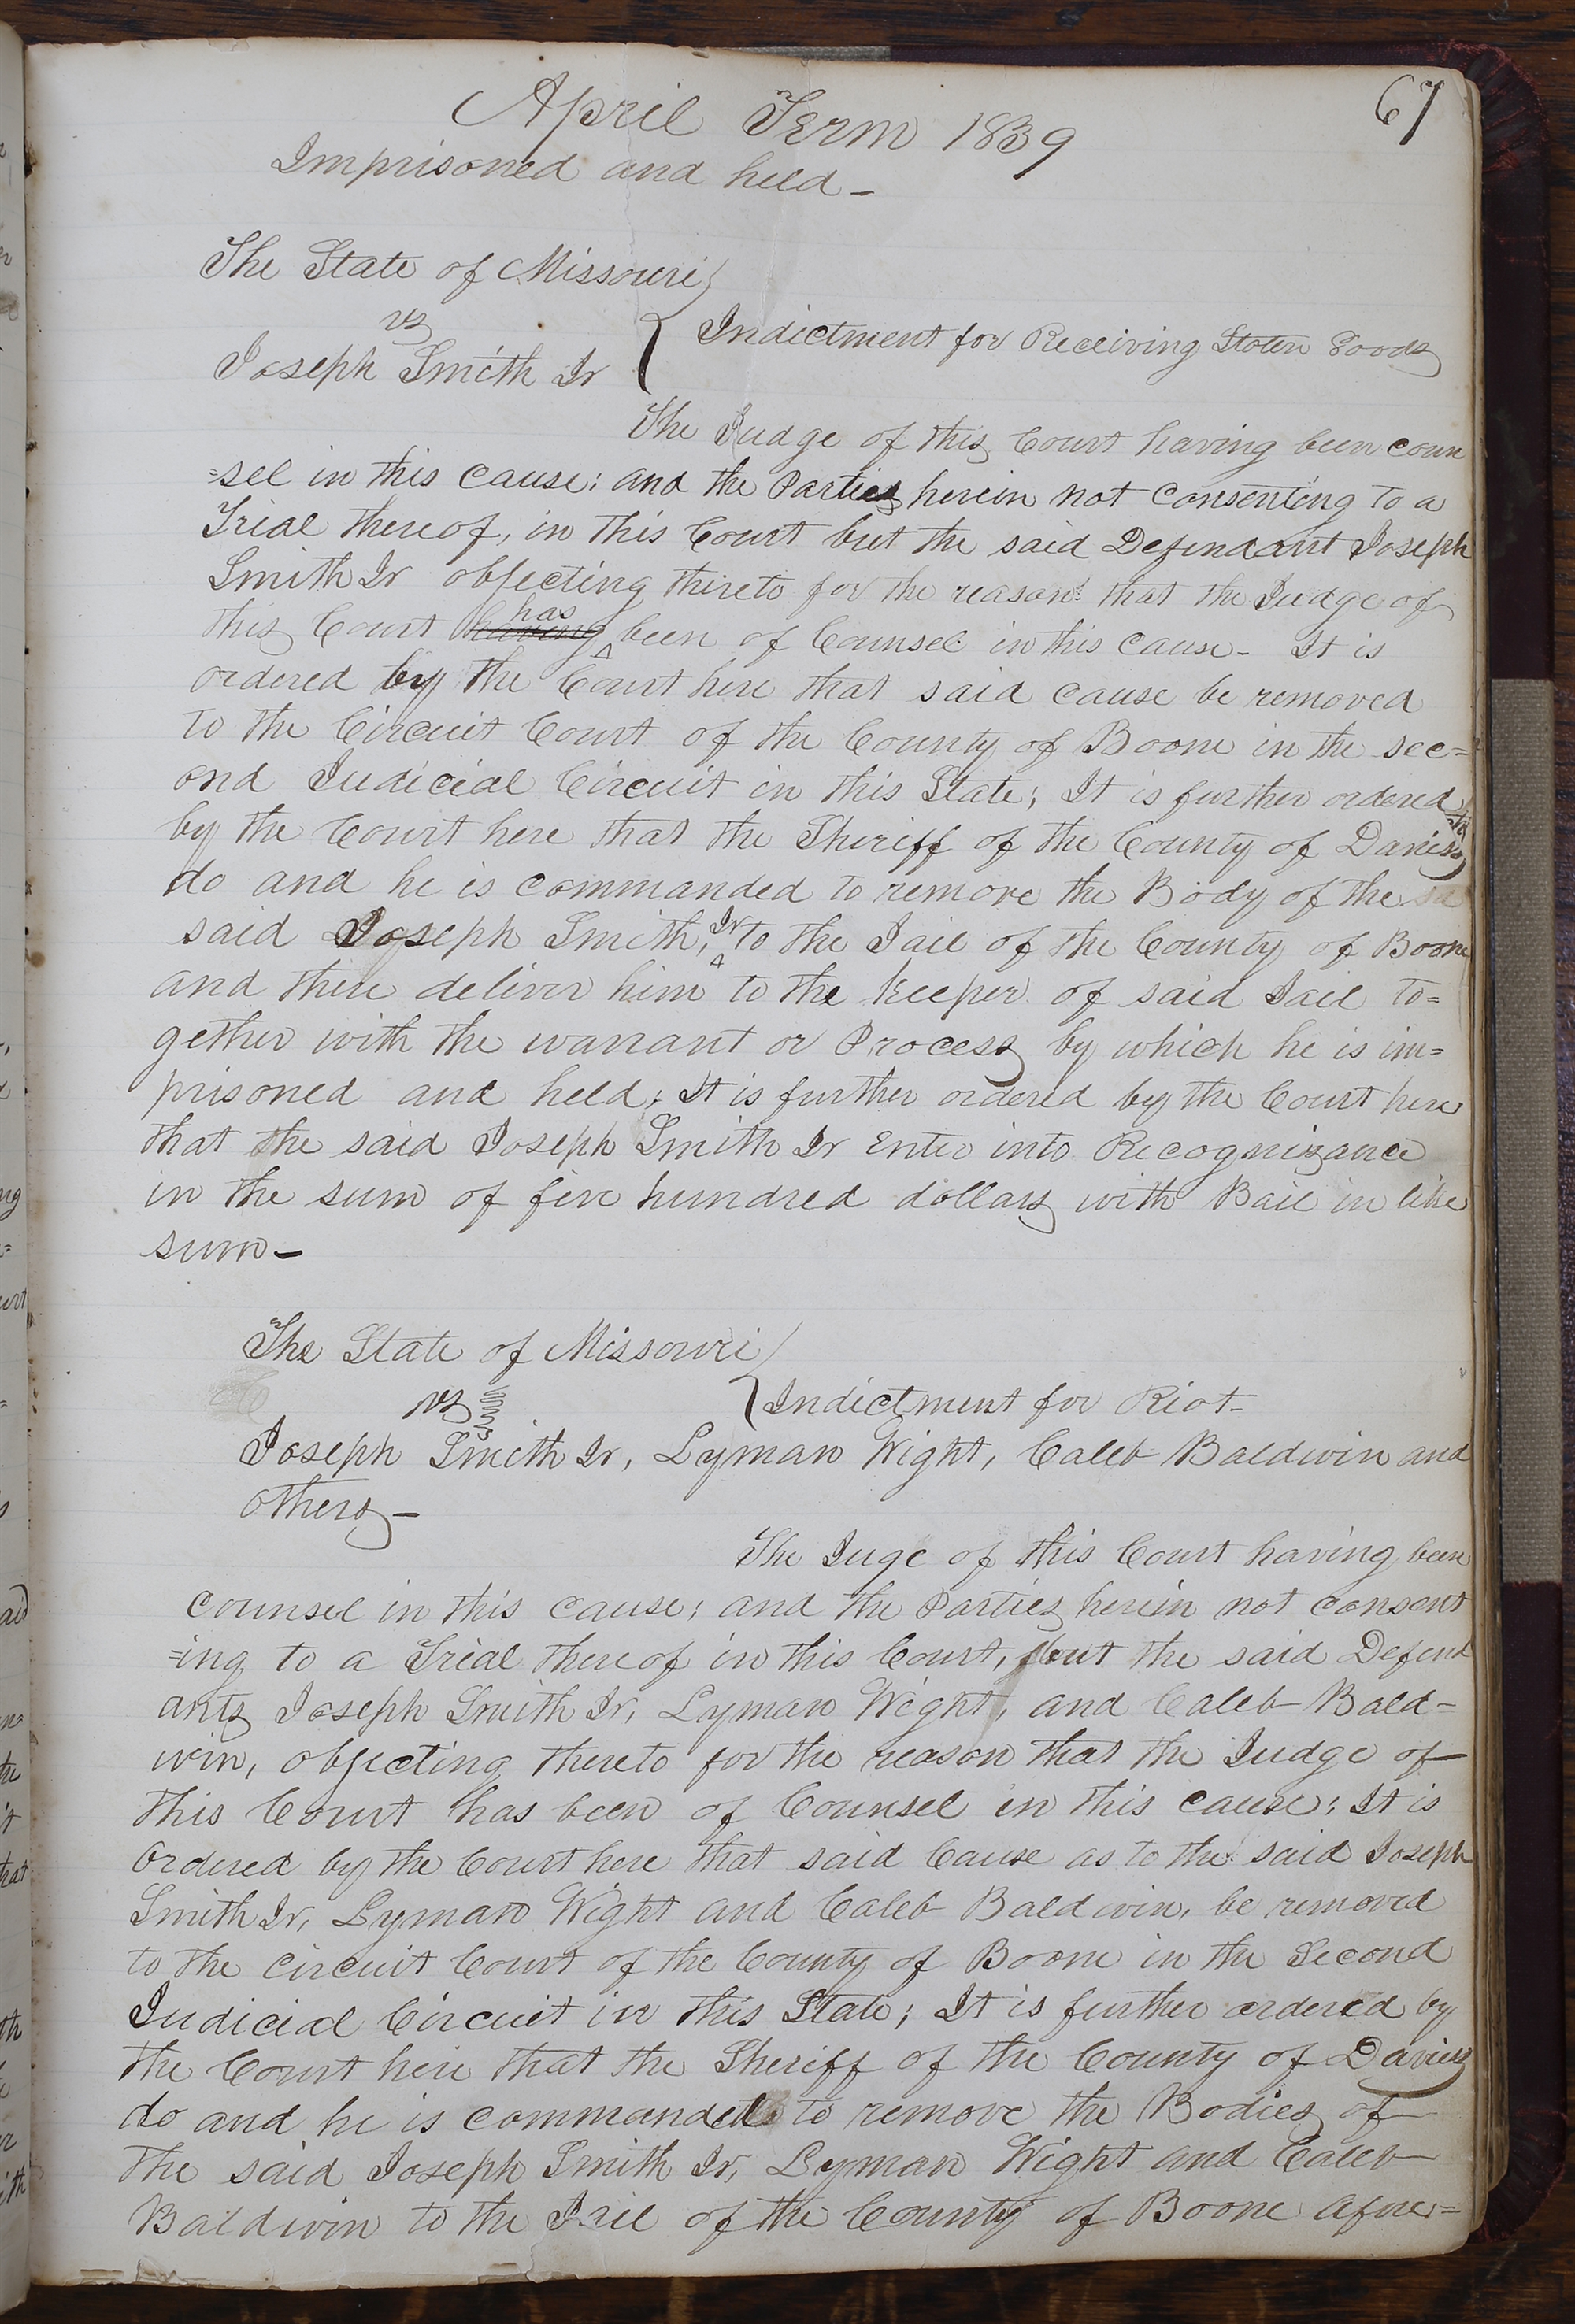 67
April Term 1839
Imprisoned and held –
The State of Missouri
vs
Indictment for Receiving Stolen Goods
Joseph Smith Jr
The Judge of this Court having been coun
=sel in this cause; and the Parties herein not consenting to a
Trial thereof, in this Court but the said Defendant Joseph
Smith Jr objecting thereto for the reason that the Judge of
this Court having has been of Counsel in this cause – It is
ordered by the Court here that said cause be removed
to the Circuit Court of the County of Boone in the sec=
ond Judicial Circuit in this State; It is further ordered
by the Court here that the Sheriff of the County of Daviess
do and he is commanded to remove the Body of the
said Joseph Smith, Jr to the Jail of the County of Boone
and there deliver him to the keeper of said Jail to=
gether with the warrant or Process by which he is im=
prisoned and held; It is further ordered by the Court here
that the said Joseph Smith Jr Enter into Recognizance
in the sum of five hundred dollars with Bail in like
sum –
The State of Missouri
vs
Indictment for Riot –
Joseph Smith Jr, Lyman Wight, Caleb Baldwin and
others –
The Juge of this Court having been
counsel in this cause; and the Parties herein not consent
=ing to a Trial thereof in this Court, but the said Defend
ants Joseph Smith Jr, Lyman Wight, and Caleb Bald=
win, objecting thereto for the reason that the Judge of
this Court has been of Counsel in this cause; It is
Ordered by the Court here that said Cause as to the said Joseph
Smith Jr, Lyman Wight and Caleb Baldwin, be removed
to the circuit Court of the County of Boone in the Second
Judicial Circuit in this State; It is further ordered by
the Court here that the Sheriff of the County of Daviess
do and he is commanded to remove the Bodies of
the said Joseph Smith Jr, Lyman Wight and Caleb
Baldwin to the Jail of the County of Boone afore=